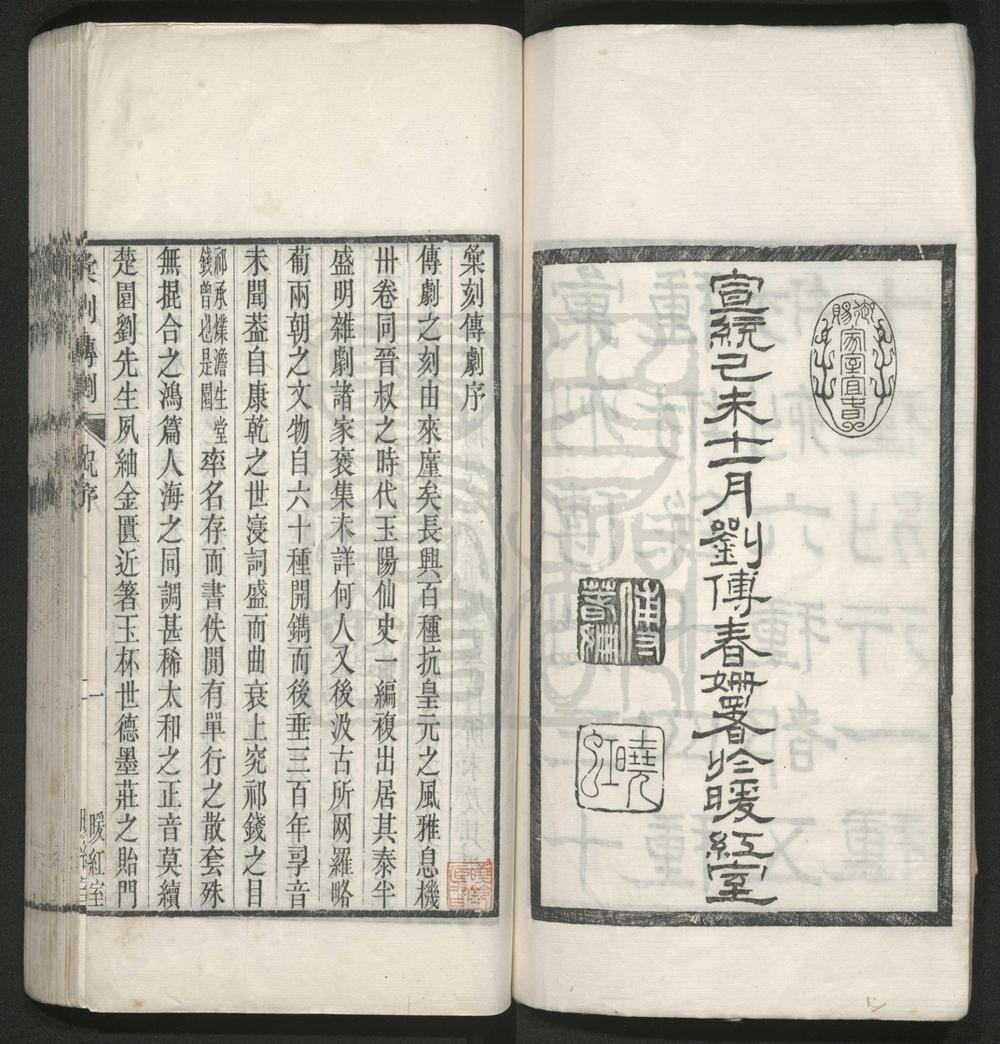 宣統己未十一月劉傅春姍署於暖紅室
曉虹
彙刻傳劇序
傳劇之刻由來廑矣長興百種抗皇元之風雅息機
卅卷同晉叔之時代玉陽仙史一編複出居其泰半
盛明雜劇諸家裒集未詳何人又後汲古所网羅略
萄兩朝之文物自六十種開鐫而後垂三百年寽音
未聞葢自康乾之世寖詞盛而曲衰上究祁錢之目
祁承㸁澹生堂
錢曾也是園
率名存而書佚閒有單行之散套殊
無掍合之鴻篇人海之同調甚稀太和之正音莫續
楚園劉先生夙紬金匱近箸玉杯世德墨莊之貽門
彙刻傳劇
序
一
暖紅室